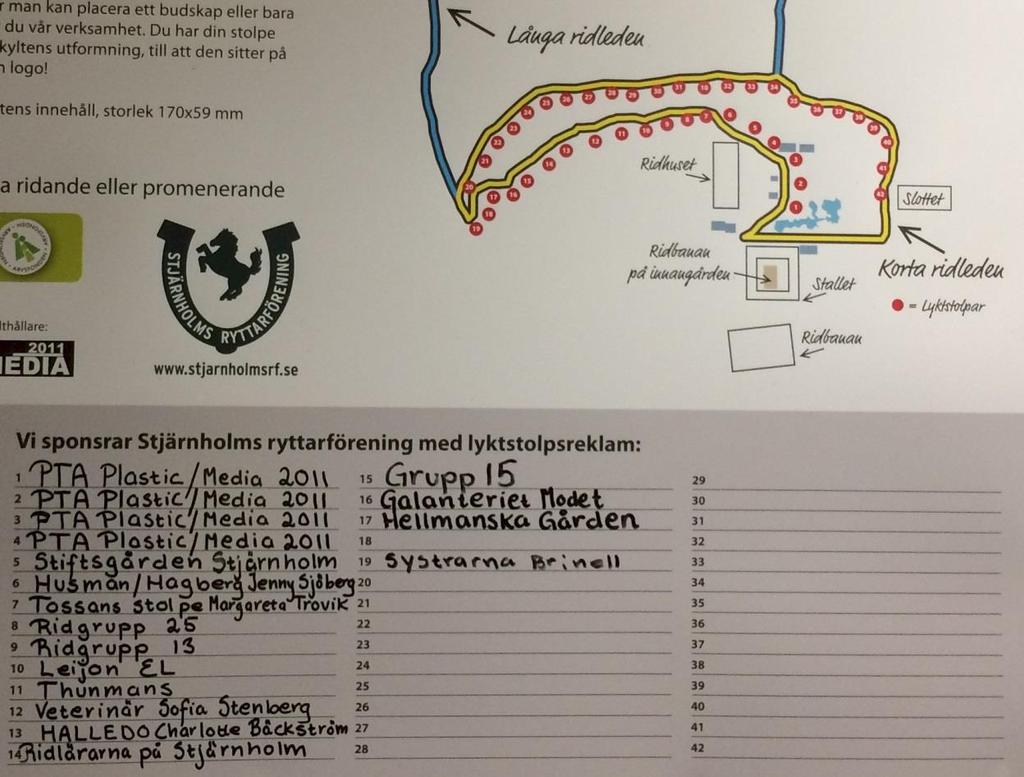 man kan placera ett budskap eller bara
du vår verksamhet. Du har din stolpe
kyltens utformning, till att den sitter på
logo!
tens innehåll, storlek 170x59 mm
a ridande eller promenerande
STJÄRNHOLMS RYTTARFÖRENING
www.stjarnholmsrf.se
lthållare:
2011
MEDIA
Långa ridleden
Ridhuset
Slottet
Ridbanan
på innangården
Stallet
Korta ridleden
= Lyktstolpar
Ridbanan
Vi sponsrar Stjärnholms ryttarförening med lyktstolpsreklam:
1 PTA Plastic/Media 2011
2 PTA Plastic/Media 2011
3 PTA Plastic/Media 2011
4 PTA Plastic/Media 2011
5 Stiftsgården Stjärnholm
6 Husman/Hagberg Jenny Sjöberg
7 Tossans stolpe Margareta Trovik
8 Ridgrupp 25
9 Ridgrupp 13
10 Leijon EL
11 Thunmans
12 Veterinär Sofia Stenberg
13 HALLEDO Charlotte Bäckström
14 Ridlärarna på Stjärnholm
15 Grupp 15
16 Galanteriet Modet
17 Hellmanska Gården
18
19 Systrarna Brinell
20
21
22
23
24
25
26
27
28
29
30
31
32
33
34
35
36
37
38
39
40
41
42